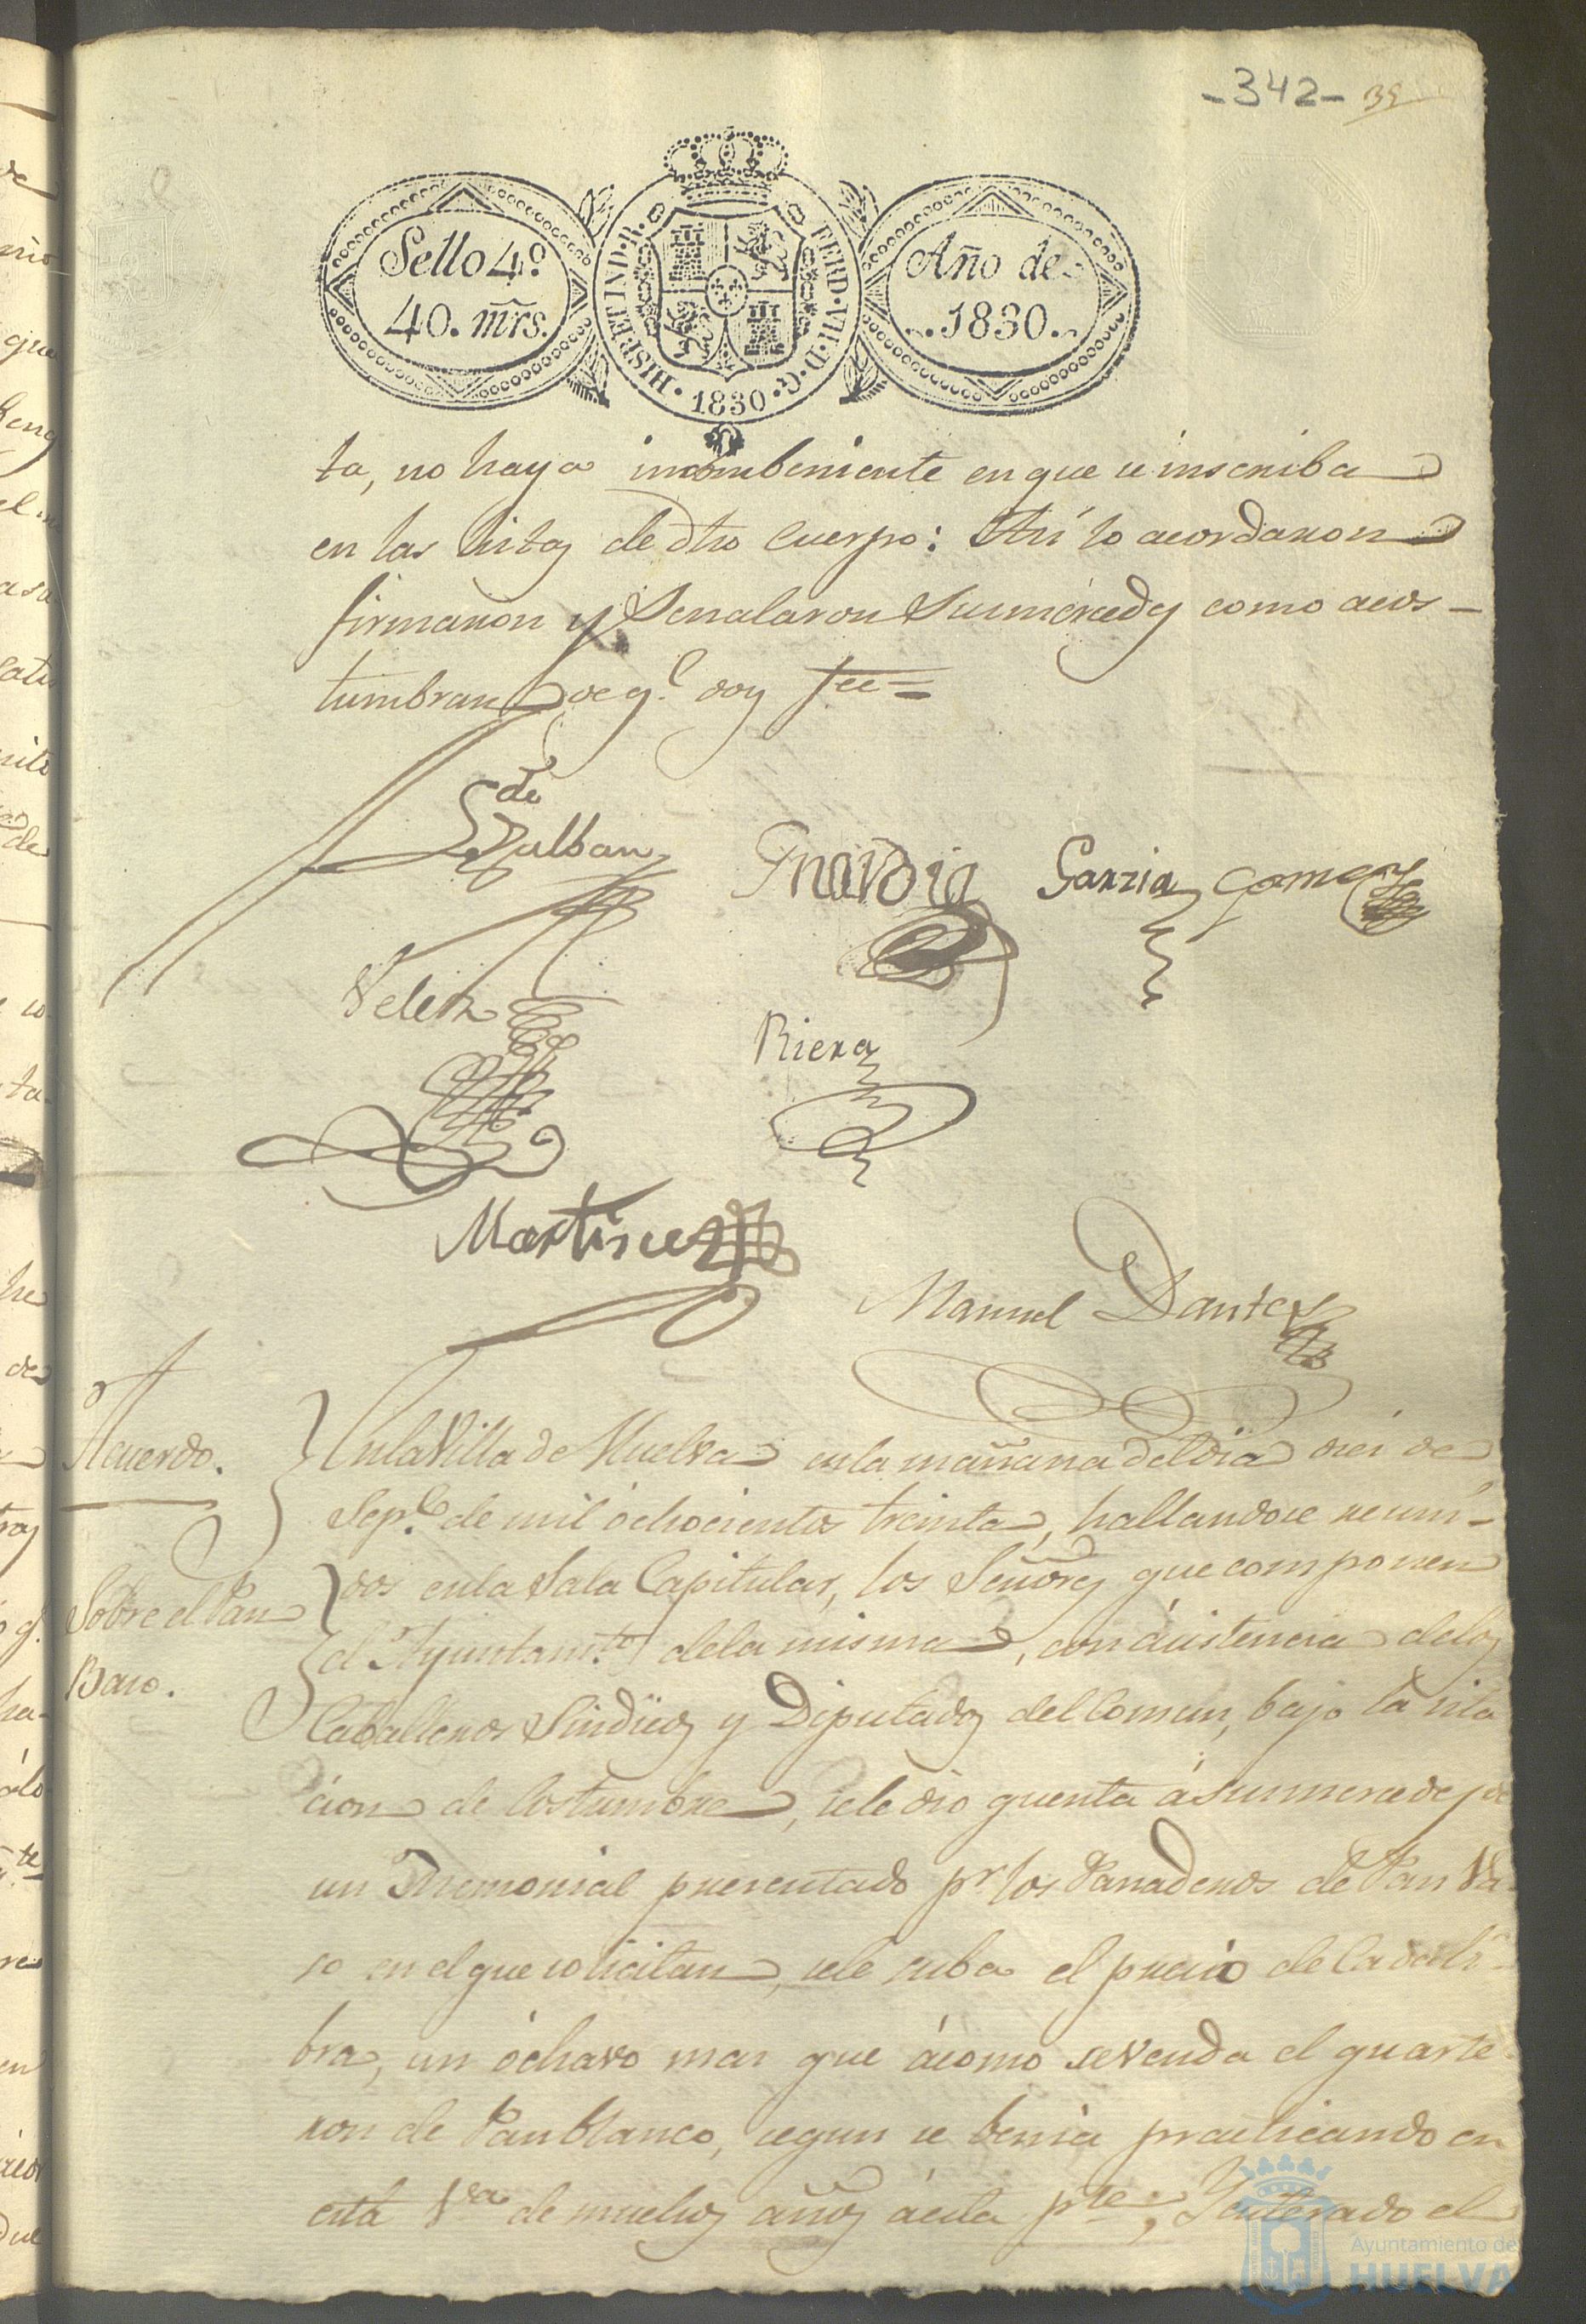 -342- 39
Sello 4.º
40. mrs.
HISP. ET IND. R.
FERD. VII. D. G.
1830
Año de
1830.
ta, no haya incombeniente en que se inscriba
en las listas de dho Cuerpo: Asi lo acordaron
firmaron y Senalaron Sus mercedes como acos-
tumbran de q.e doy fee=
de
Galban
Garzia Gomez
Velez
Riera
Martinez
Manuel Dantes
Acuerdo.
Sobre el Pan
Baso.
En la Villa de Huelva en la mañana del dia diez de
Sep.e de mil ochocientos treinta, hallandose reuni-
dos en la Sala Capitular, los Señores que componen
el Ayuntam.to de la misma, con asistencia de los
Caballeros Sindicos y Diputados del Comun, bajo la sita
cion de costumbre, se le dio quenta á sus mercedes de
un Memorial presentado p.r los Panaderos de Pan Va-
so en el que solicitan, se le suba el precio de cada li-
bra, un óchavo mas que ácomo se venda el quarte-
ron de Pan blanco, segun se benia practicando en
esta V.a de muchos años á esta p.te; Y enterado el
Ayuntamiento de
HUELVA